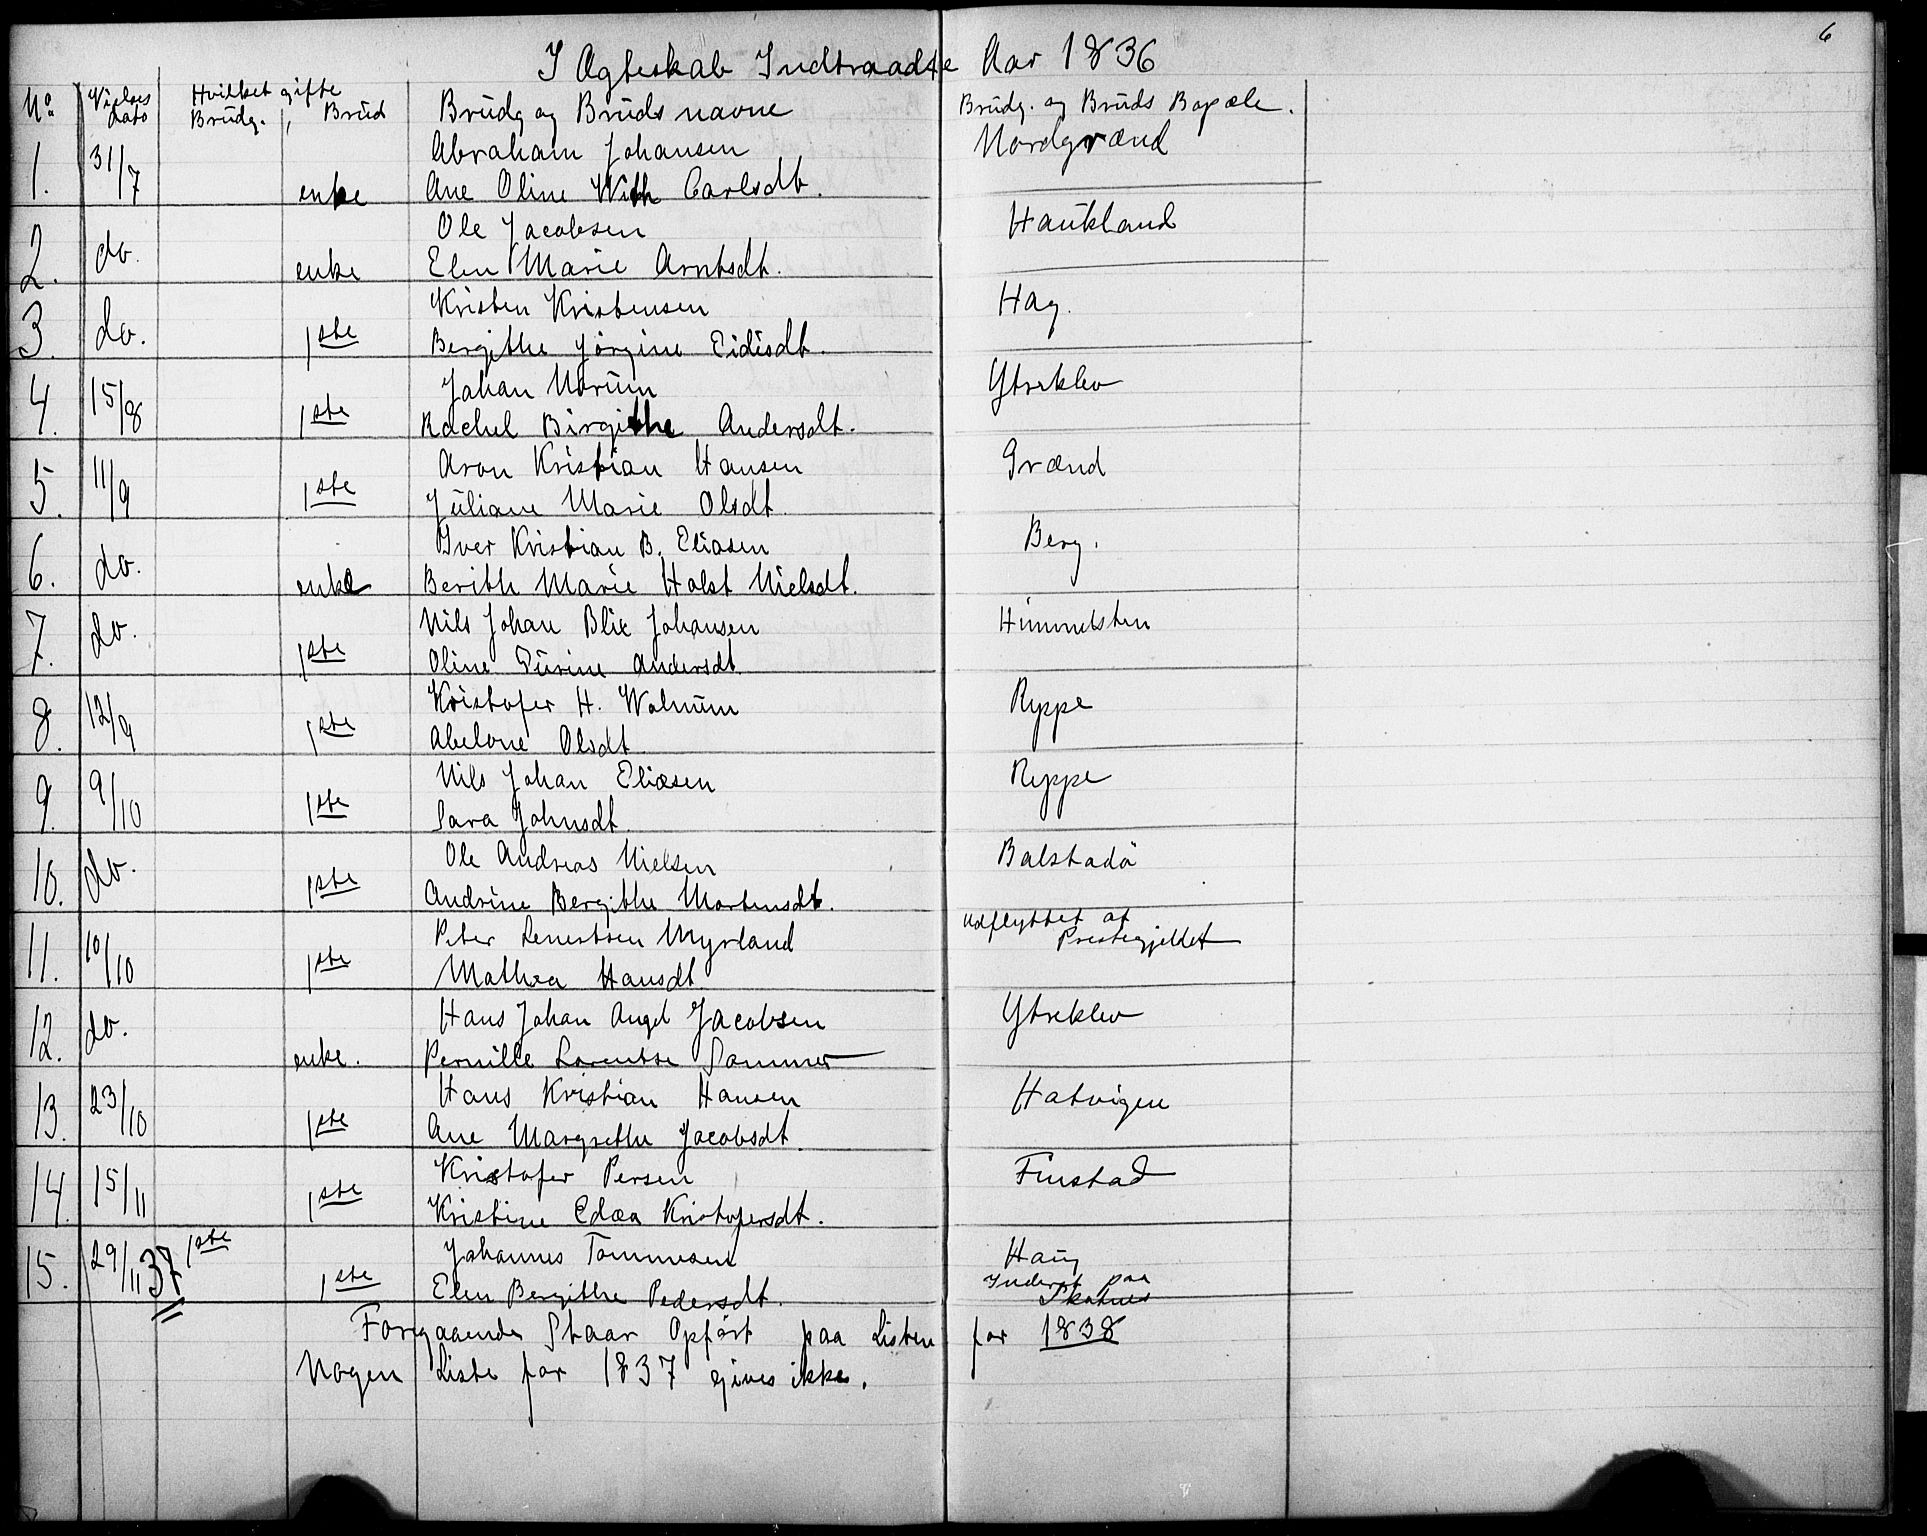 6
I Ægteskab Indtraadte Aar 1836
No. Vielses dato Hvilket gifte Brudg. , Brud Brudg og Bruds navne Brudg. og Bruds Bopæle.
1. 31/7 Abraham Johansen Nordgrænd
enke Ane Oline With Carlsdt.
2. do. Ole Jacobsen Haukland
enke Elen Marie Arntsdt.
3. do. Kristen Kristensen Hag.
1ste Bergithe Jørgine Eidisdt.
4. 15/8 Johan Norum Ytreklev
1ste Rachel Birgithe Andersdt.
5. 11/9 Aron Kristian Hansen Grænd
1ste Juliane Marie Olsdt.
6. do. Iver Kristian B. Eliasen Berg.
enke Berith Marie Holst Nielsdt.
7. do. Nils Johan Blix Johansen Himmelsten
1ste Oline Andersdt.
8. 12/9 Kristofer H. Walnum Ryppe
1ste Abelone Olsdt.
9. 9/10 Nils Johan Eliasen Ryppe
1ste Sara Johnsdt.
10. do. Ole Andreas Nielsen Balstadø
1ste Andrine Bergithe Mortensdt.
11. 10/10 Peter Lenertsen Myrland Udflyttet af Prestegjeldet
1ste Mathea Hansdt.
12. do. Hans Johan Angel Jacobsen Ytreklev
enke. Pernille Lorentse Sommer
13. 23/10 Hans Kristian Hansen Hatvigen
1ste Ane Margrethe Jacobsdt.
14. 15/11 Kristofer Persen Finstad
1ste Kristine Edæa Kristofersdt.
15. 29/11 37 1ste Johannes Tommesen Haug
1ste Elen Bergithe Pedersdt. Inderst paa Skotnes
Forgaaende Staar Opført paa Listen for 1838
Nogen Liste for 1837 gives ikke.